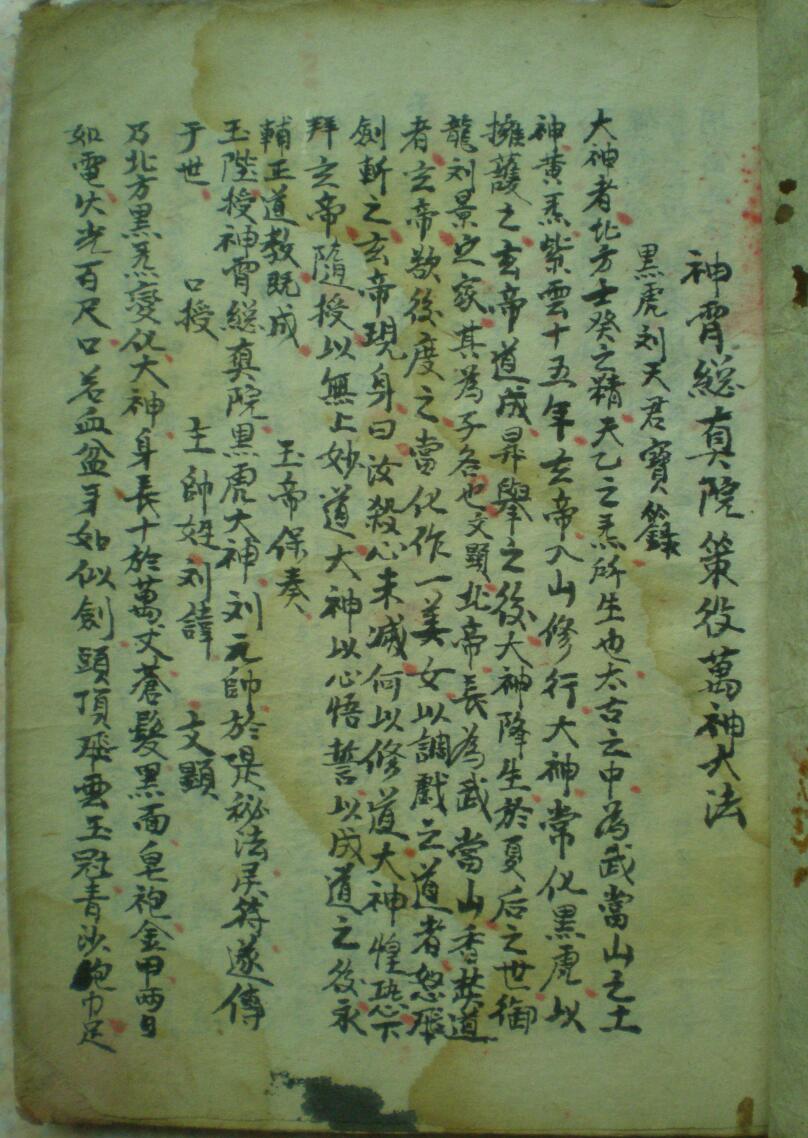 神霄総真院策役萬神大法
黑虎刘天君寳籙
大神者北方壬癸之精天乙之炁所生也太古之中為武當山之土
神黄炁紫雲十五年玄帝入山修行大神常化黑虎以
擁護之玄帝道成昇舉之後大神降生於夏后之世御
龍刘景之家其為子名也文顕北帝長為武當山香焚道
者玄帝欲後度之當化作一美女以調戲之道者怒
劍斬之玄帝現身曰汝殺心未滅何以修道大神惶恐下
拜玄帝隨授以無上妙道大神以心悟誓以成道之後永
輔正道教既成 玉帝保奏
玉陛授神霄総真院黑虎大神刘元帥於是秘法灵符遂傳
于世 口授 主帥姓刘諱 文顕
乃北方黑炁變化大神身長十於萬丈蒼髮黑面皂袍金甲两目
如電火光百尺口若血盆牙如似劍頭頂雲玉冠青沙袍巾足